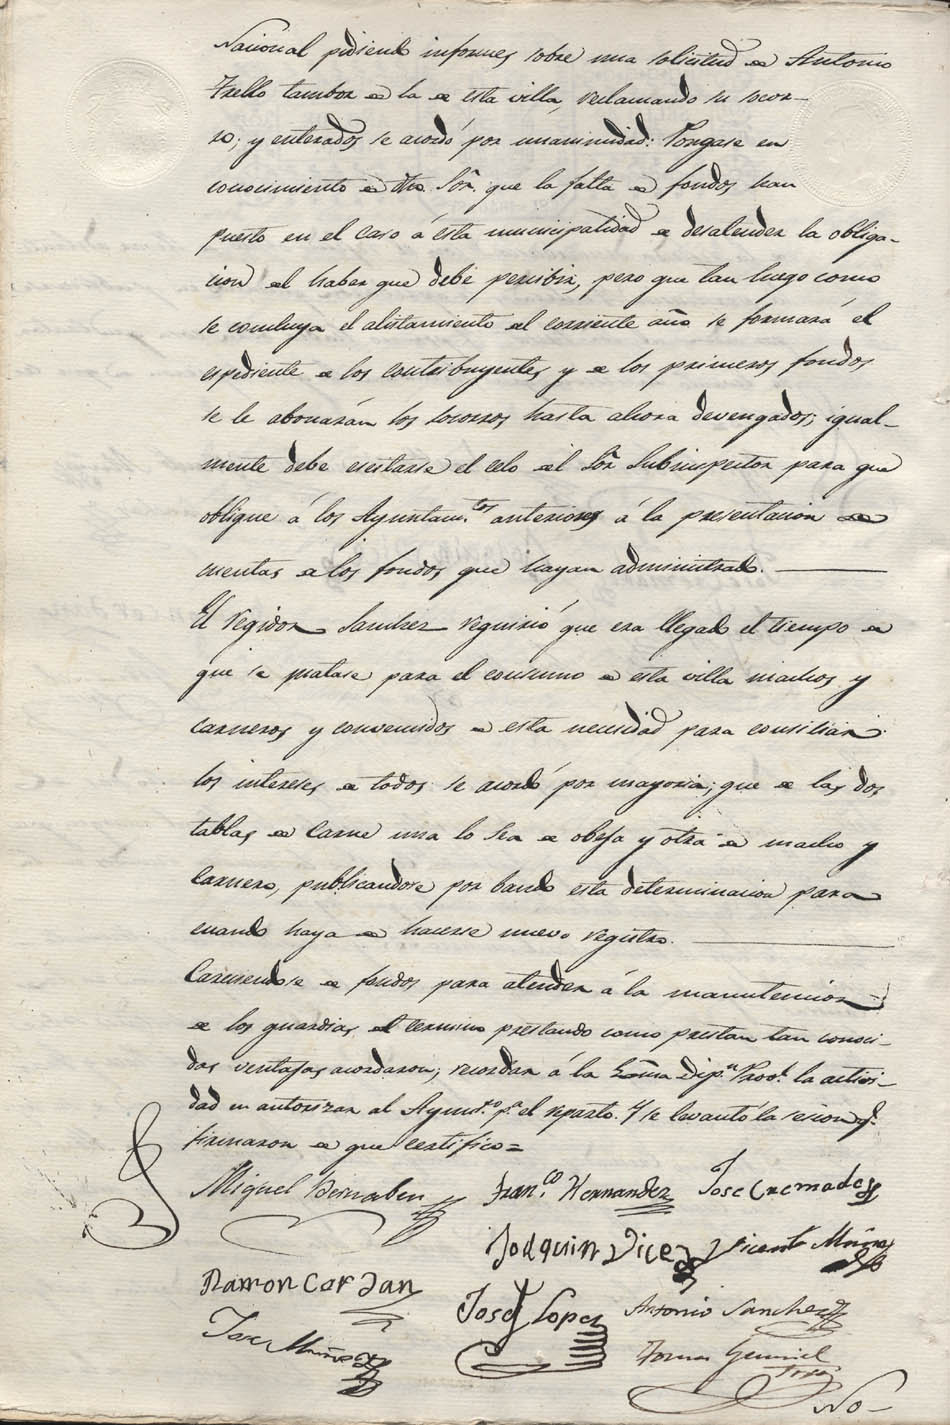 Nacional pidiendo informes sobre una solicitud de Antonio
Trello tambor de la de esta villa, reclamando su socor-
ro; y enterados se acordó por unanimidad: Pongase en
conocimiento de dho. Sõr. que la falta de fondos han
puesto en el caso á ésta municipalidad de desatender la obliga-
cion del haber que debe percibir, pero que tan luego como
se concluya el alistamiento del corriente año se formará el
espediente de los contribuyentes y de los primeros fondos
se le abonarán los socorros hasta ahora devengados; igual-
mente debe escitarse el celo del Sõr Subinspector para que
obligue á los Ayuntam.tos anteriores á la presentacion de
cuentas de los fondos que hayan administrado.
El regidor Sanchez requirió que era llegado el tiempo de
que se matase para el consumo de esta villa machos y
carneros y convencidos de esta necesidad para consiliar
los intereses de todos se acordó por mayoria; que de las dos
tablas de carne una lo sea de obeja y otra de macho y
carnero, publicandose por bando esta determinacion para
cuando haya de hacerse nuevo registro.
Careciendose de fondos para atender á la manutencion
de los guardias del termino prestando como prestan tan conoci-
das ventajas acordaron; recordar á la Ecsma Dip.n Prov.l la activi-
dad en autorizar al Ayunt.to p.a el reparto. Y se levantó la sesion q.e
firmaron de que certifico=
Miguel Bernabeu
Fran.co Hernandez
Jose Cremades
Joaquin
Vicente Muñoz
Ramon Cor
Jose Lopez
Antonio Sanchez
Jose Muñoz
Tomas
No-